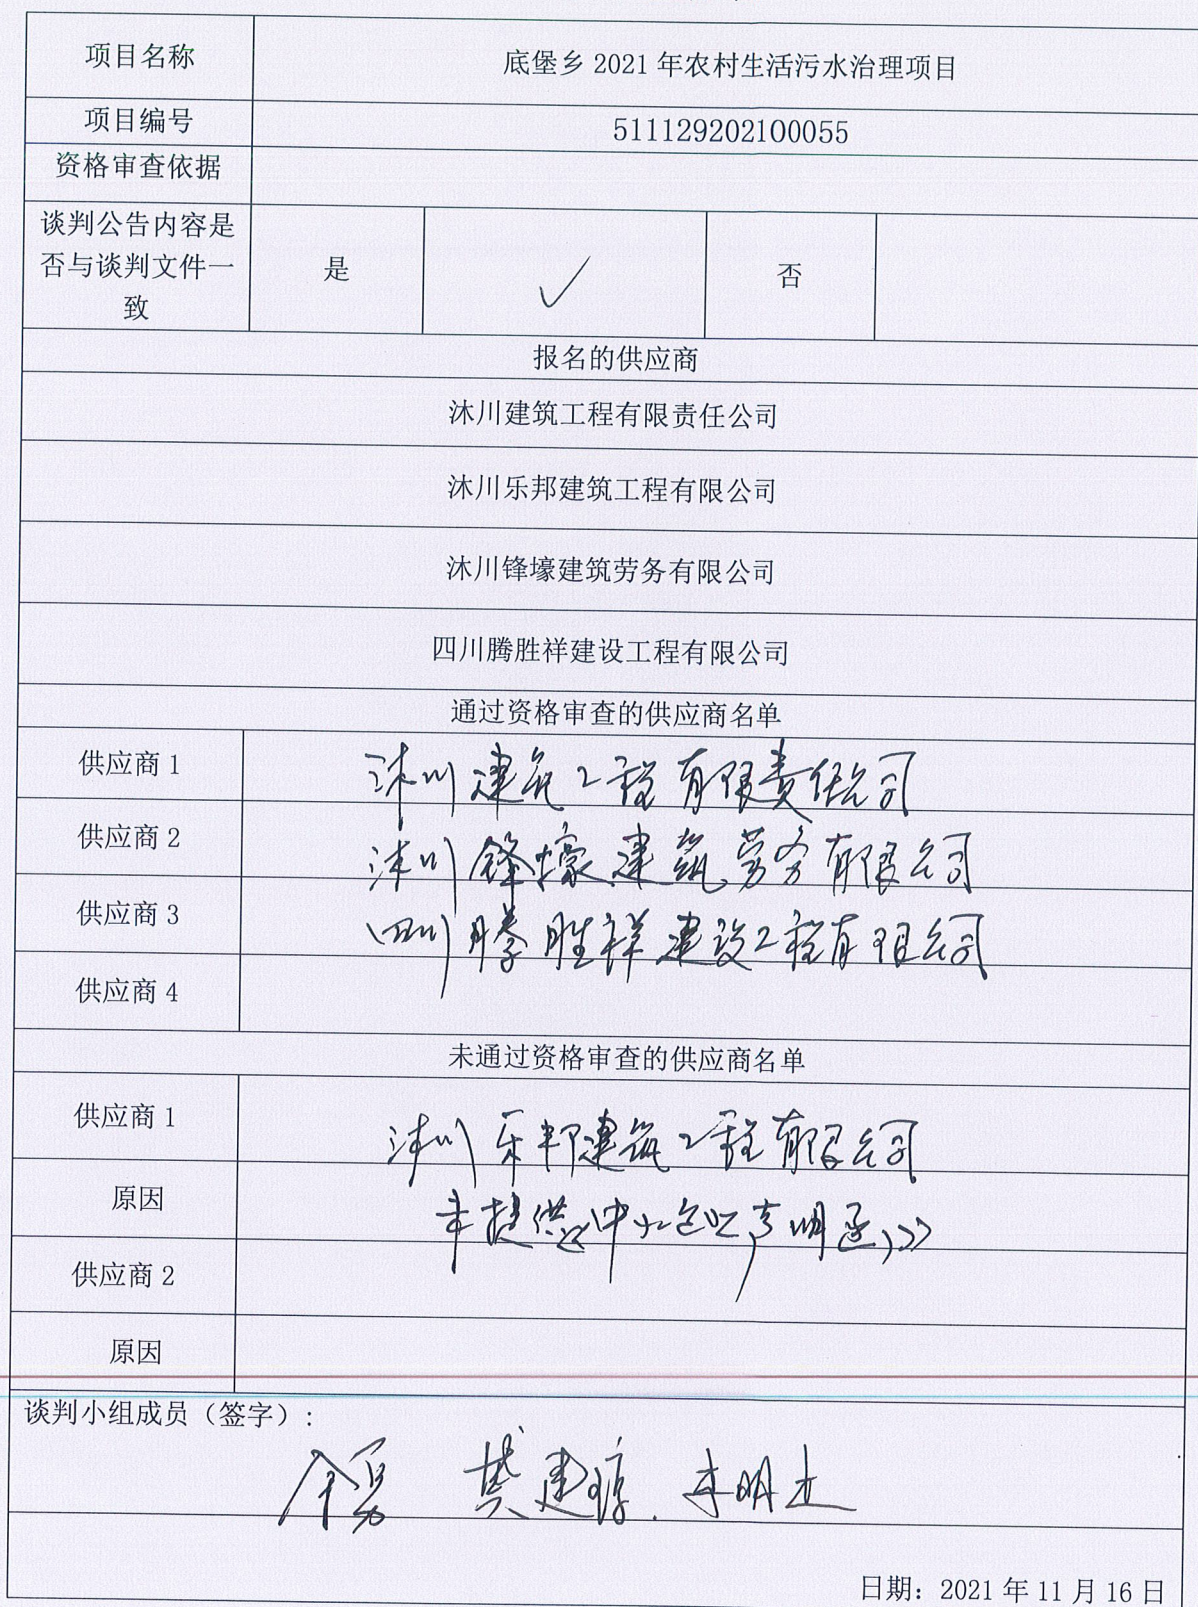 项目名称 底堡乡 2021 年农村生活污水治理项目
项目编号 511129202100055
资格审查依据
谈判公告内容是
否与谈判文件一
致
是 ✓ 否
报名的供应商
沐川建筑工程有限责任公司
沐川乐邦建筑工程有限公司
沐川锋壕建筑劳务有限公司
四川腾胜祥建设工程有限公司
通过资格审查的供应商名单
供应商 1 沐川建筑工程有限责任公司
供应商 2 沐川锋壕建筑劳务有限公司
供应商 3 四川腾胜祥建设工程有限公司
供应商 4
未通过资格审查的供应商名单
供应商 1 沐川乐邦建筑工程有限公司
原因 未提供《中小企业声明函》
供应商 2
原因
谈判小组成员（签字）:
日期：2021 年 11 月 16 日